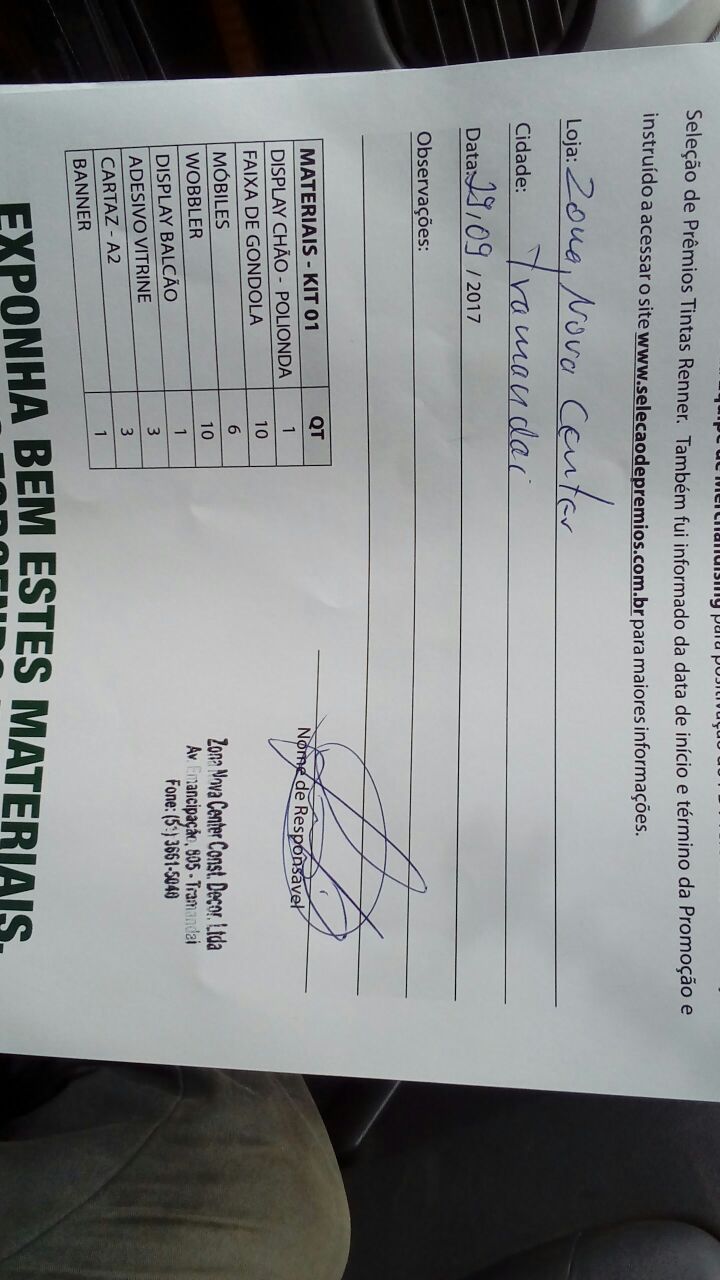 equipe de Merchandising para positivação
Seleção de Prêmios Tintas Renner. Também fui informado da data de início e término da Promoção e
instruído a acessar o site www.selecaodepremios.com.br para maiores informações.
Loja: Zona Nova Center
Cidade: Tramandai
Data: 29,09 / 2017
Observações:
MATERIAIS - KIT 01 QT
DISPLAY CHÃO - POLIONDA 1
FAIXA DE GONDOLA 10
MÓBILES 6
WOBBLER 10
DISPLAY BALCÃO 1
ADESIVO VITRINE 3
CARTAZ - A2 3
BANNER 1
Nome de Responsavel
Zona Nova Center Const. Decor. Ltda
Av. Emancipação, 805 - Tramandai
Fone: (51) 3661-5040
EXPONHA BEM ESTES MATERIAIS.